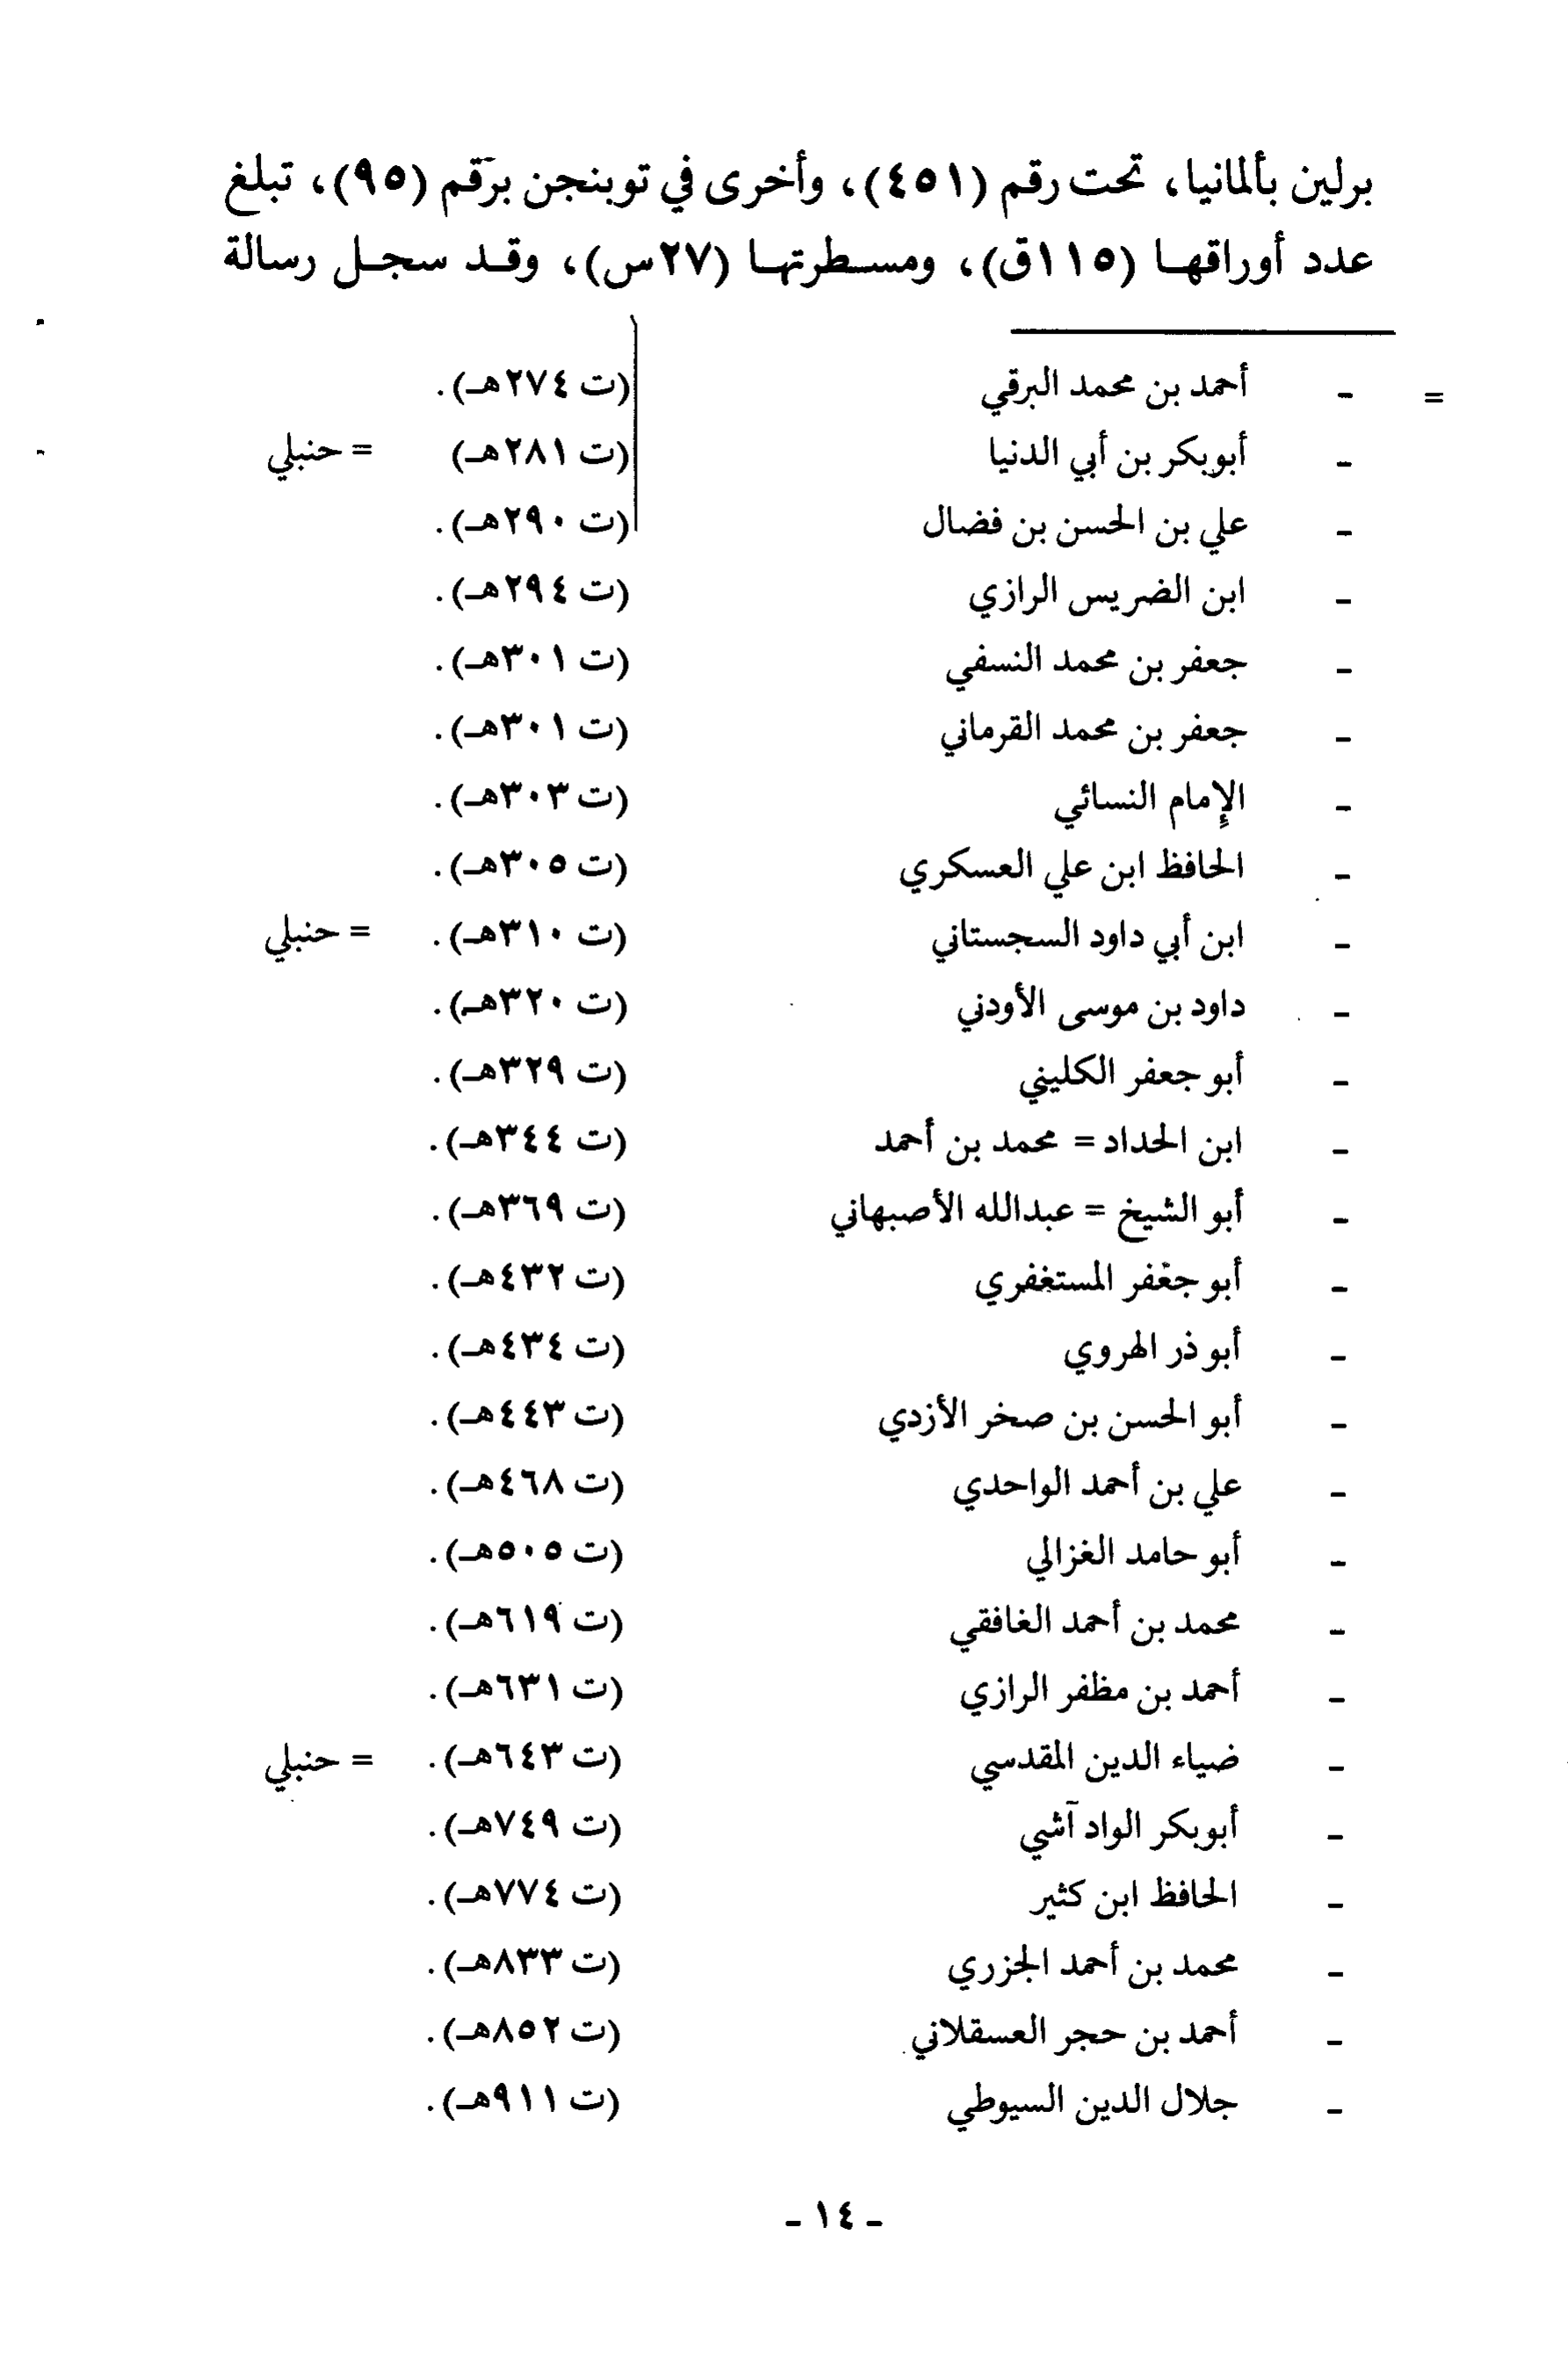 برلين بألمانيا، تحت رقم (٤٥١)، وأخرى في توبنجن برقم (٩٥)، تبلغ
عدد أوراقها (١١٥ق)، ومسطرتها (٢٧س)، وقد سجل رسالة
= - أحمد بن محمد البرقي (ت ٢٧٤هـ).
- أبوبكر بن أبي الدنيا (ت ٢٨١هـ) = حنبلي
- علي بن الحسن بن فضال (ت ٢٩٠هـ).
- ابن الضريس الرازي (ت ٢٩٤هـ).
- جعفر بن محمد النسفي (ت ٣٠١هـ).
- جعفر بن محمد القرماني (ت ٣٠١هـ).
- الإمام النسائي (ت ٣٠٣هـ).
- الحافظ ابن علي العسكري (ت ٣٠٥هـ).
- ابن أبي داود السجستاني (ت ٣١٠هـ). = حنبلي
- داود بن موسى الأودني (ت ٣٢٠هـ).
- أبو جعفر الكليني (ت ٣٢٩هـ).
- ابن الحداد = محمد بن أحمد (ت ٣٤٤هـ).
- أبو الشيخ = عبدالله الأصبهاني (ت ٣٦٩هـ).
- أبو جعفر المستغفري (ت ٤٣٢هـ).
- أبو ذر الهروي (ت ٤٣٤هـ).
- أبو الحسن بن صخر الأزدي (ت ٤٤٣هـ).
- علي بن أحمد الواحدي (ت ٤٦٨هـ).
- أبو حامد الغزالي (ت ٥٠٥هـ).
- محمد بن أحمد الغافقي (ت ٦١٩هـ).
- أحمد بن مظفر الرازي (ت ٦٣١هـ).
- ضياء الدين المقدسي (ت ٦٤٣هـ). = حنبلي
- أبوبكر الواد آشي (ت ٧٤٩هـ).
- الحافظ ابن كثير (ت ٧٧٤هـ).
- محمد بن أحمد الجزري (ت ٨٣٣هـ).
- أحمد بن حجر العسقلاني (ت ٨٥٢هـ).
- جلال الدين السيوطي (ت ٩١١هـ).
- ١٤ -